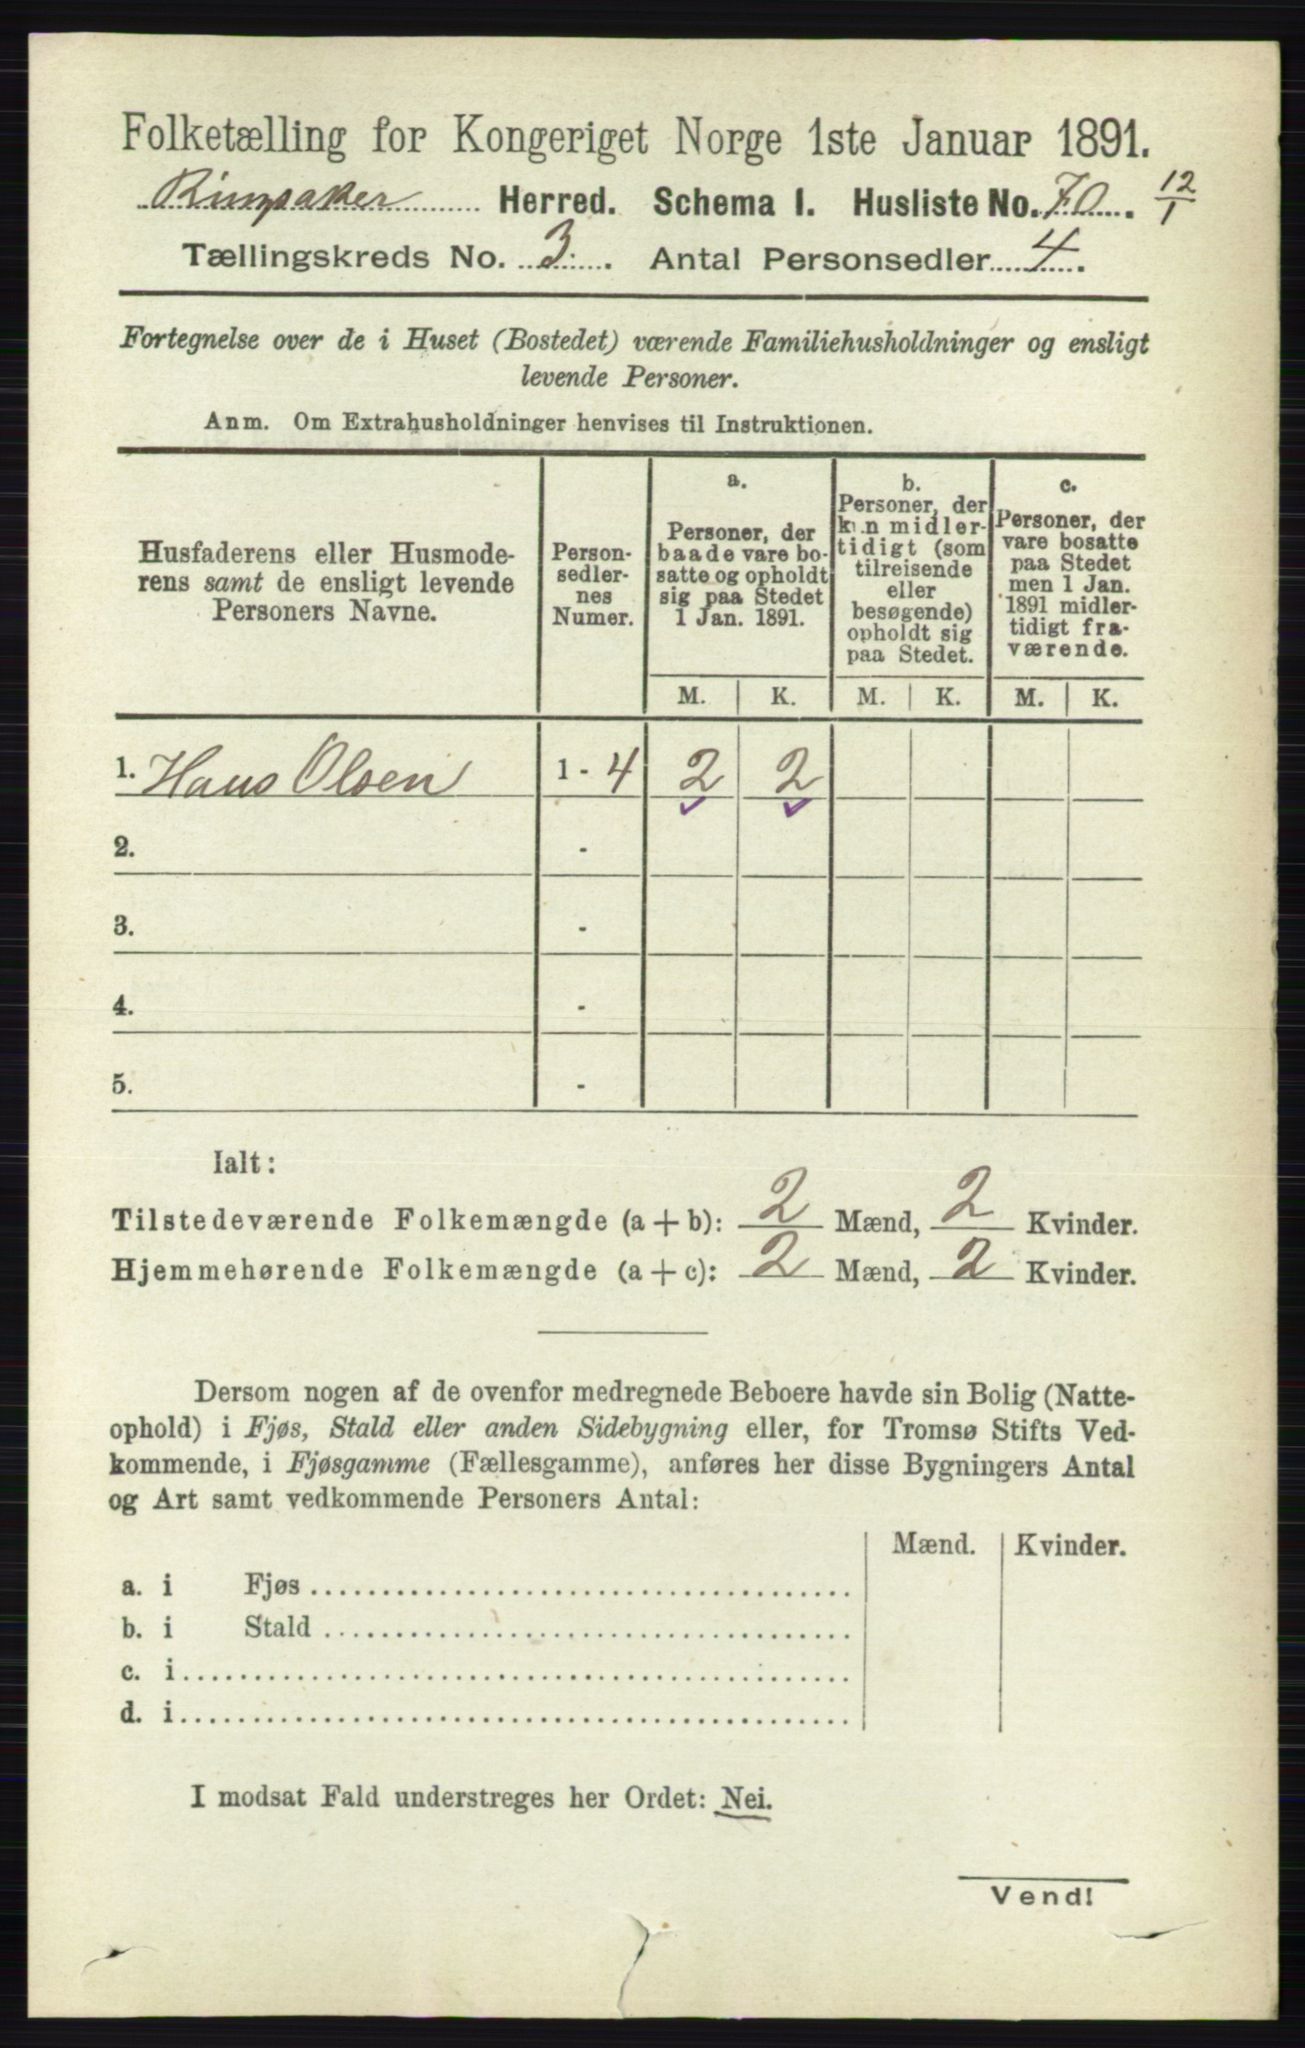 Folketælling for Kongeriget Norge 1ste Januar 1891.
Ringsaker Herred. Schema I. Husliste No. 70. 12/1
Tællingskreds No. 3. Antal Personsedler 4.
Fortegnelse over de i Huset (Bostedet) værende Familiehusholdninger og ensligt
levende Personer.
Anm. Om Extrahusholdninger henvises til Instruktionen.
Husfaderens eller Husmode-
rens samt de ensligt levende
Personers Navne.
Person-
sedler-
nes
Numer.
a.
Personer, der
baade vare bo-
satte og opholdt
sig paa Stedet
1 Jan. 1891.
b.
Personer, der
kun midler-
tidigt (som
tilreisende
eller
besøgende)
opholdt sig
paa Stedet.
c.
Personer, der
vare bosatte
paa Stedet
men 1 Jan.
1891 midler-
tidigt fra-
værende.
M. K. M. K. M. K.
1. Hans Olsen 1 - 4 2 2
2. -
3. -
4. -
5. -
Ialt:
Tilstedeværende Folkemængde (a + b): 2 Mænd, 2 Kvinder.
Hjemmehørende Folkemængde (a + c): 2 Mænd, 2 Kvinder.
Dersom nogen af de ovenfor medregnede Beboere havde sin Bolig (Natte-
ophold) i Fjøs, Stald eller anden Sidebygning eller, for Tromsø Stifts Ved-
kommende, i Fjøsgamme (Fællesgamme), anføres her disse Bygningers Antal
og Art samt vedkommende Personers Antal:
Mænd. Kvinder.
a. i Fjøs
b. i Stald
c. i
d. i
I modsat Fald understreges her Ordet: Nei.
Vend!